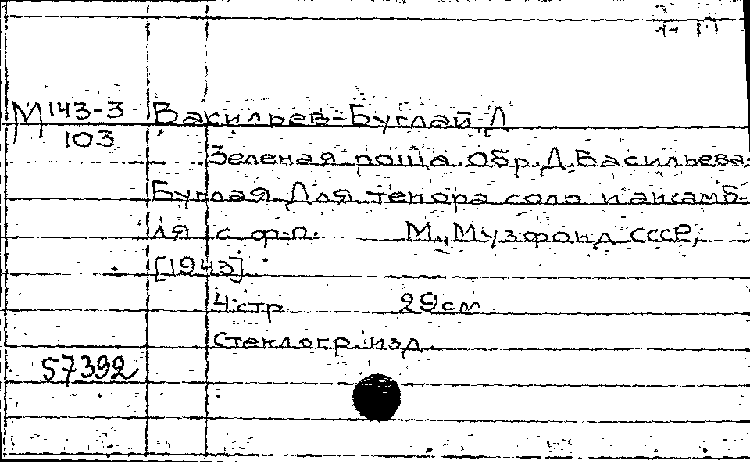 М 143-3
103
Васильев-Буглай, Д
Зеленая роща. Обр. Д. Васильева-
Буглая. Для тенора соло и ансамб-
ля с ф.п. М., Музфонд СССР,
[1943]
4 стр 29 см
Стеклогр. изд.
57392